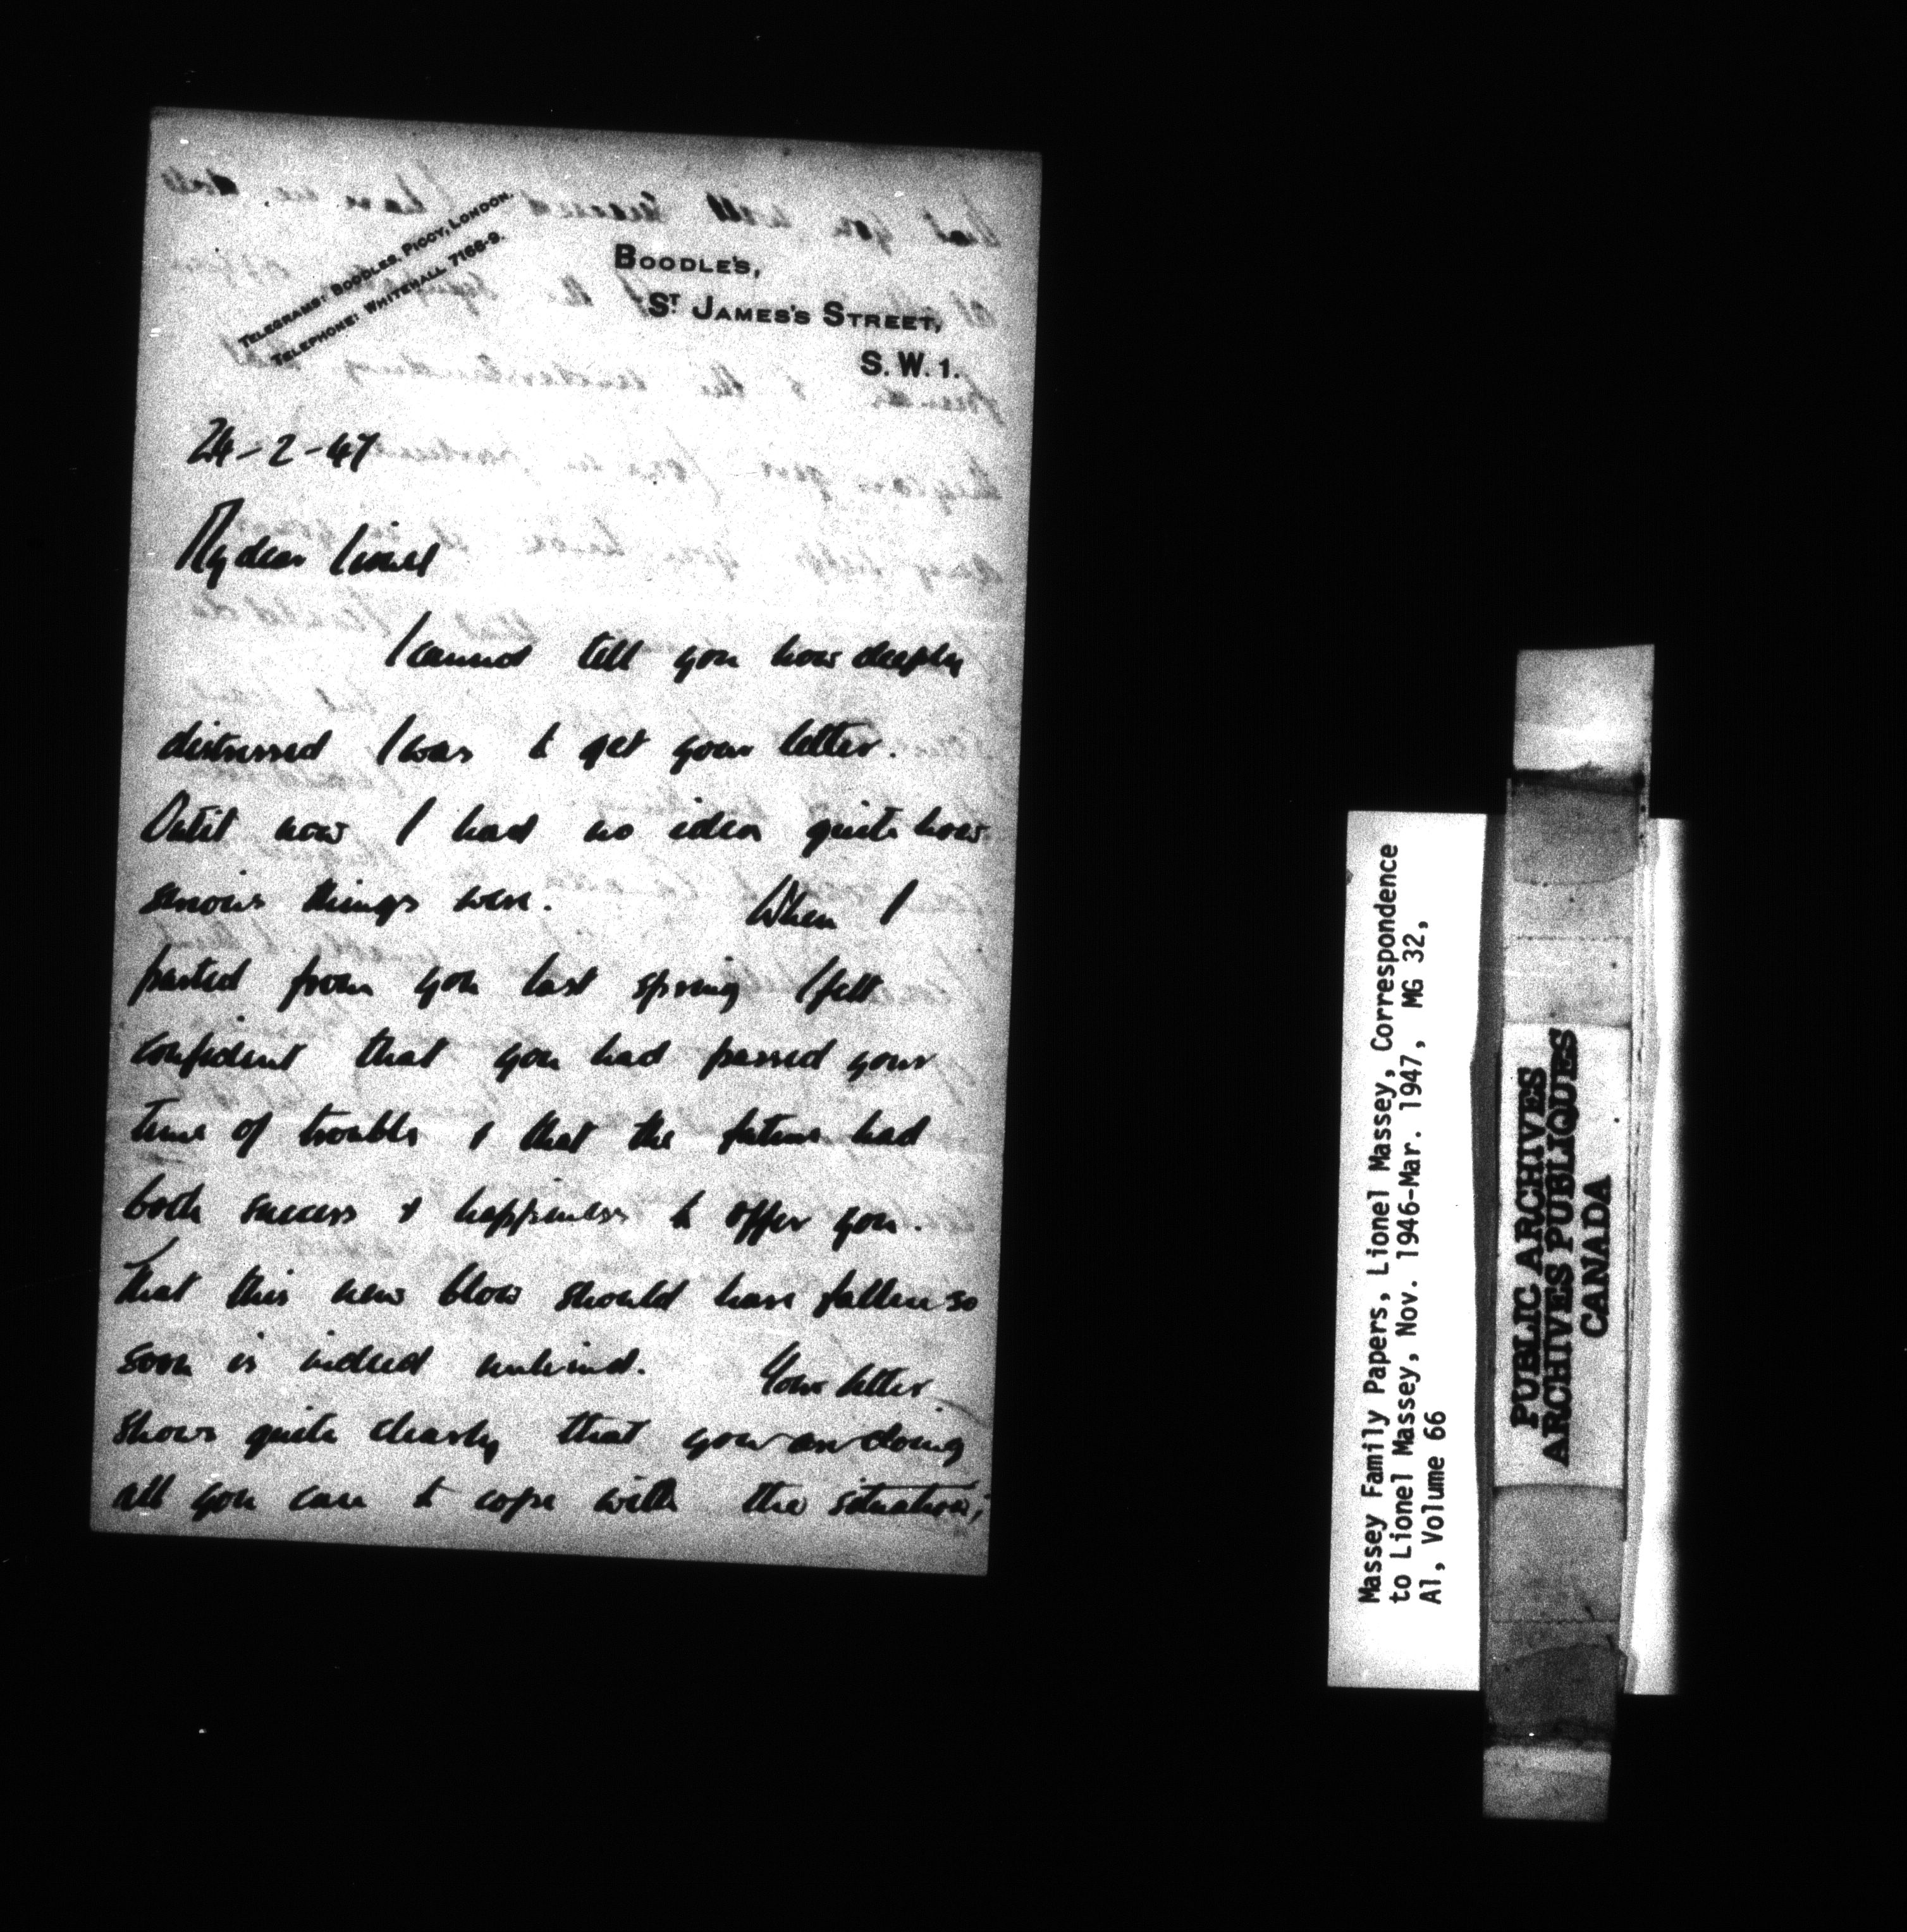 TELEGRAMS: BOODLES, PICCY, LONDON.
TELEPHONE: WHITEHALL 7166-9.
BOODLE'S,
ST JAMES'S STREET,
S. W. 1.
24-2-47
My dear Lionel
I cannot tell you how deeply
distressed I was to get your letter.
Until now I had no idea quite how
serious things were. When I
parted from you last spring I felt
confident that you had passed your
time of trouble & that the future had
both success & happiness to offer you.
That this new blow should have fallen so
soon is indeed unkind. Your letter
shows quite clearly that you are doing
all you can to cope with the situation;
Massey Family Papers, Lionel Massey, Correspondence
to Lionel Massey, Nov. 1946-Mar. 1947, MG 32,
A1, Volume 66
PUBLIC ARCHIVES
ARCHIVES PUBLIQUES
CANADA